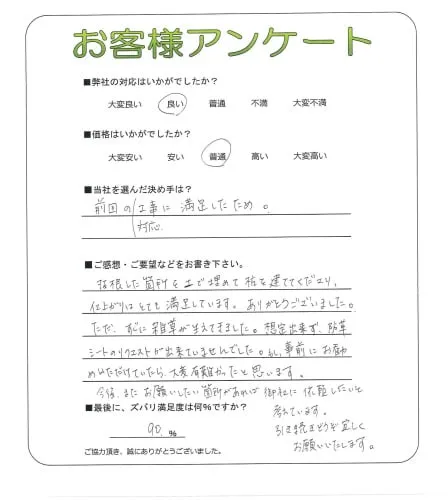 お客様アンケート
■弊社の対応はいかがでしたか?
大変良い 良い 普通 不満 大変不満
■価格はいかがでしたか?
大変安い 安い 普通 高い 大変高い
■当社を選んだ決め手は?
前回の工事に満足したため。
対応
■ご感想・ご要望などをお書き下さい。
抜根した箇所を土で埋めて杭を建ててくださり、
仕上がりはとても満足しています。ありがとうございました。
ただ、すぐに雑草が生えてきました。想定出来ず、防草
シートのリクエストが出来ていませんでした。もし、事前にお勧
めいただけていたら、大変有難かったと思います。
今後、またお願いしたい箇所があれば御社に依頼したいと
考えています。
引き続きどうぞ宜しく
お願いいたします。
■最後に、ズバリ満足度は何%ですか?
90 %
ご協力頂き、誠にありがとうございました。